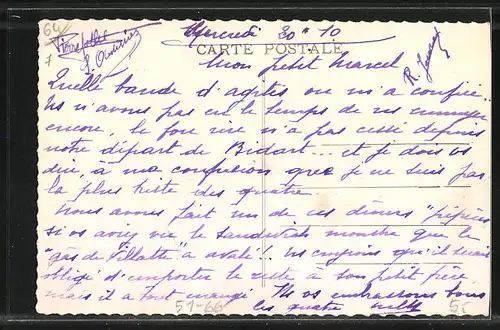 64
Mercredi 30-10
CARTE POSTALE
Mon petit Marcel
Quelle bande d'agités on m'a confiée
Ns n'avons pas eu le temps de ns ennuyer
encore, le fou rire n'a pas cessé depuis
notre départ de Bidart... et je dois vs
dire, à ma confusion que je ne suis pas
la plus triste des quatre.
Nous avons fait un de ces dîners
si vs aviez vu le sandwich monstre que le
"gâs de Villatte" a avalé! ns croyions qu'il serait
obligé d'emporter le reste à son petit frère
mais il a tout mangé. Ns vs embrassons tous
les quatre
51-66